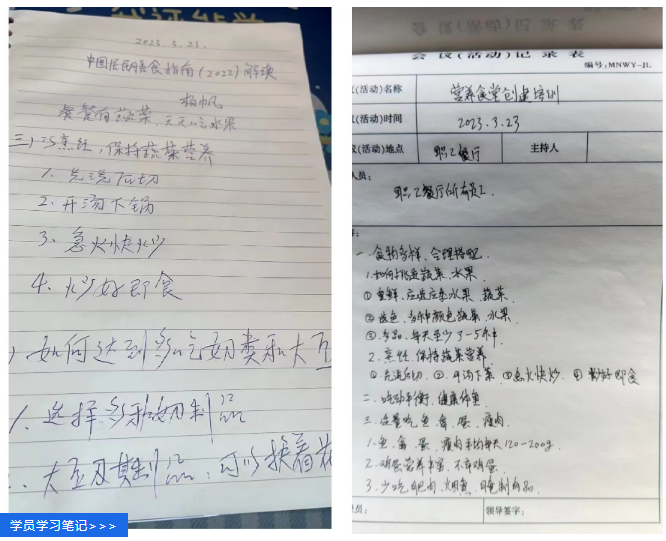 2023.3.21
中国居民膳食指南(2022)解读
杨帆
餐餐有蔬菜,天天吃水果
三)巧烹饪,保持蔬菜营养
1. 先洗后切
2. 开汤下锅
3. 急火快炒
4. 炒好即食
如何达到多吃奶类和大豆
1. 选择多种奶制品
大豆及其制品,可以换着花
学员学习笔记>>>
会议(活动)记录表
编号:MNWY-JL
议(活动)名称
营养食堂创建培训
议(活动)时间
2023.3.23
议(活动)地点
职工餐厅
主持人
人员:
职工餐厅所有员工.
一.食物多样、合理搭配.
1.如何挑选蔬菜、水果
①重鲜、应选应季水果、蔬菜.
②选色、多种颜色蔬菜、水果
③多品、每天至少3-5种.
2.烹饪 保持蔬菜营养
①先洗后切、②开汤下菜 ③急火快炒、④炒好即食
二.吃动平衡、健康体重
三.适量吃鱼、禽、蛋、瘦肉
1.鱼、禽、蛋、瘦肉平均每天120-200g.
2.鸡蛋营养丰富、不弃鸡蛋.
3.少吃肥肉、烟熏、腌制肉品.
员:
领导签字: